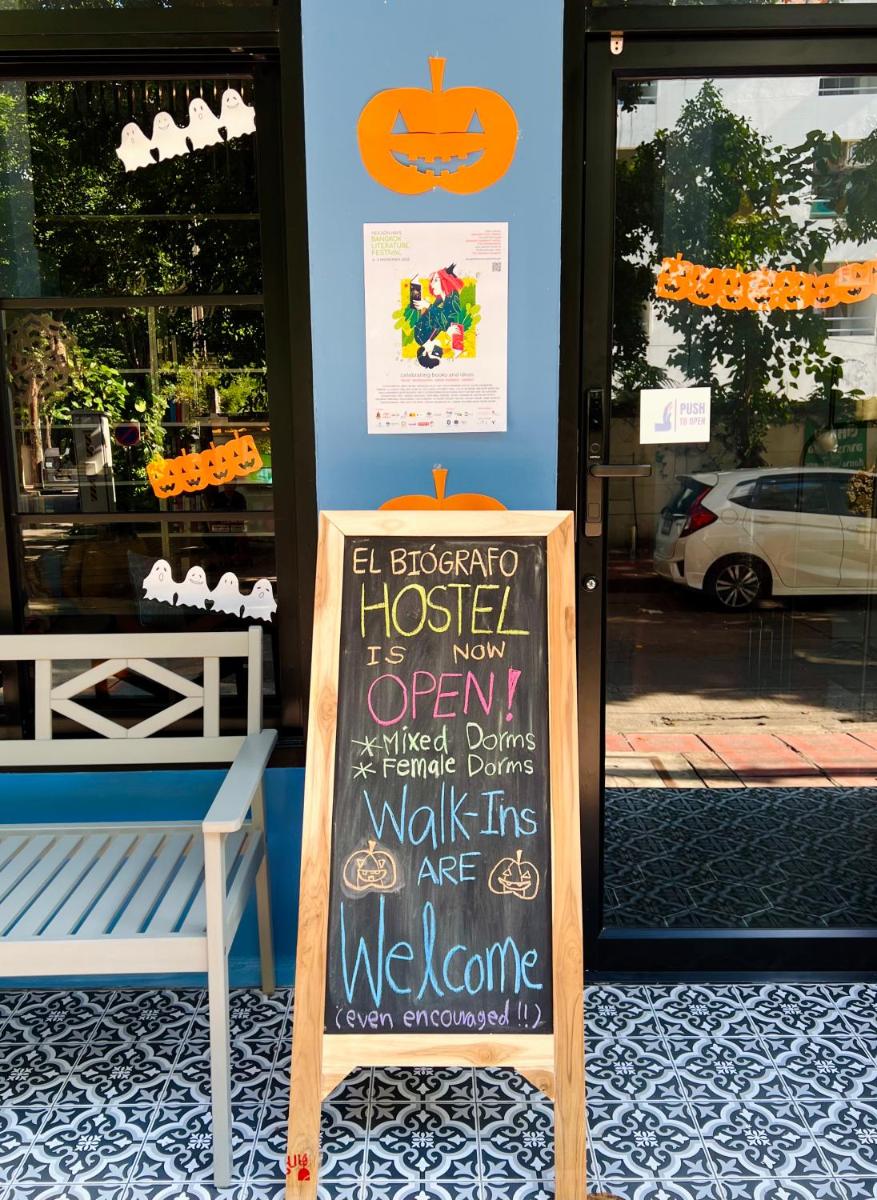 BANGKOK
LITERATURE
FESTIVAL
celebrating books and ideas
PUSH
TO OPEN
EL BIÓGRAFO
HOSTEL
IS NOW
OPEN!
*Mixed Dorms
*Female Dorms
Walk-Ins
ARE
Welcome
(even encouraged!!)